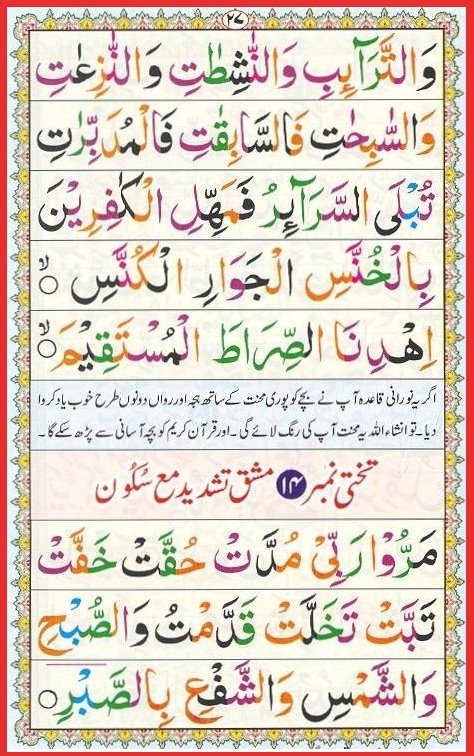 ۲۷
وَالتَّرَآئِبِ وَالنّٰشِطٰتِ وَالنّٰزِعٰتِ
وَالسّٰبِحٰتِ فَالسّٰبِقٰتِ فَالْمُدَبِّرٰتِ
تُبْلَى السَّرَآئِرُ فَمَهِّلِ الْكٰفِرِيْنَ
بِالْخُنَّسِ الْجَوَارِ الْكُنَّسِ ۙ○
اِهْدِنَا الصِّرَاطَ الْمُسْتَقِيْمَ ۙ○
اگر یہ نورانی قاعدہ آپ نے بچے کو پوری محنت کے ساتھ ہجہ اور رواں دونوں طرح خوب یاد کروا
دیا۔ تو انشاء اللہ یہ محنت آپ کی رنگ لائے گی۔ اور قرآن کریم کو بچہ آسانی سے پڑھ سکے گا۔
تختی نمبر ۱۴ مشق تشدید مع سُکُون
مَرُّوْا رَبِّيْ مُدَّتْ حُقَّتْ خَفَّتْ
تَبَّتْ تَخَلَّتْ قَدَّمْتُ وَالصُّبْحِ
وَالشَّمْسِ وَالشَّفْعِ بِالصَّبْرِ ○